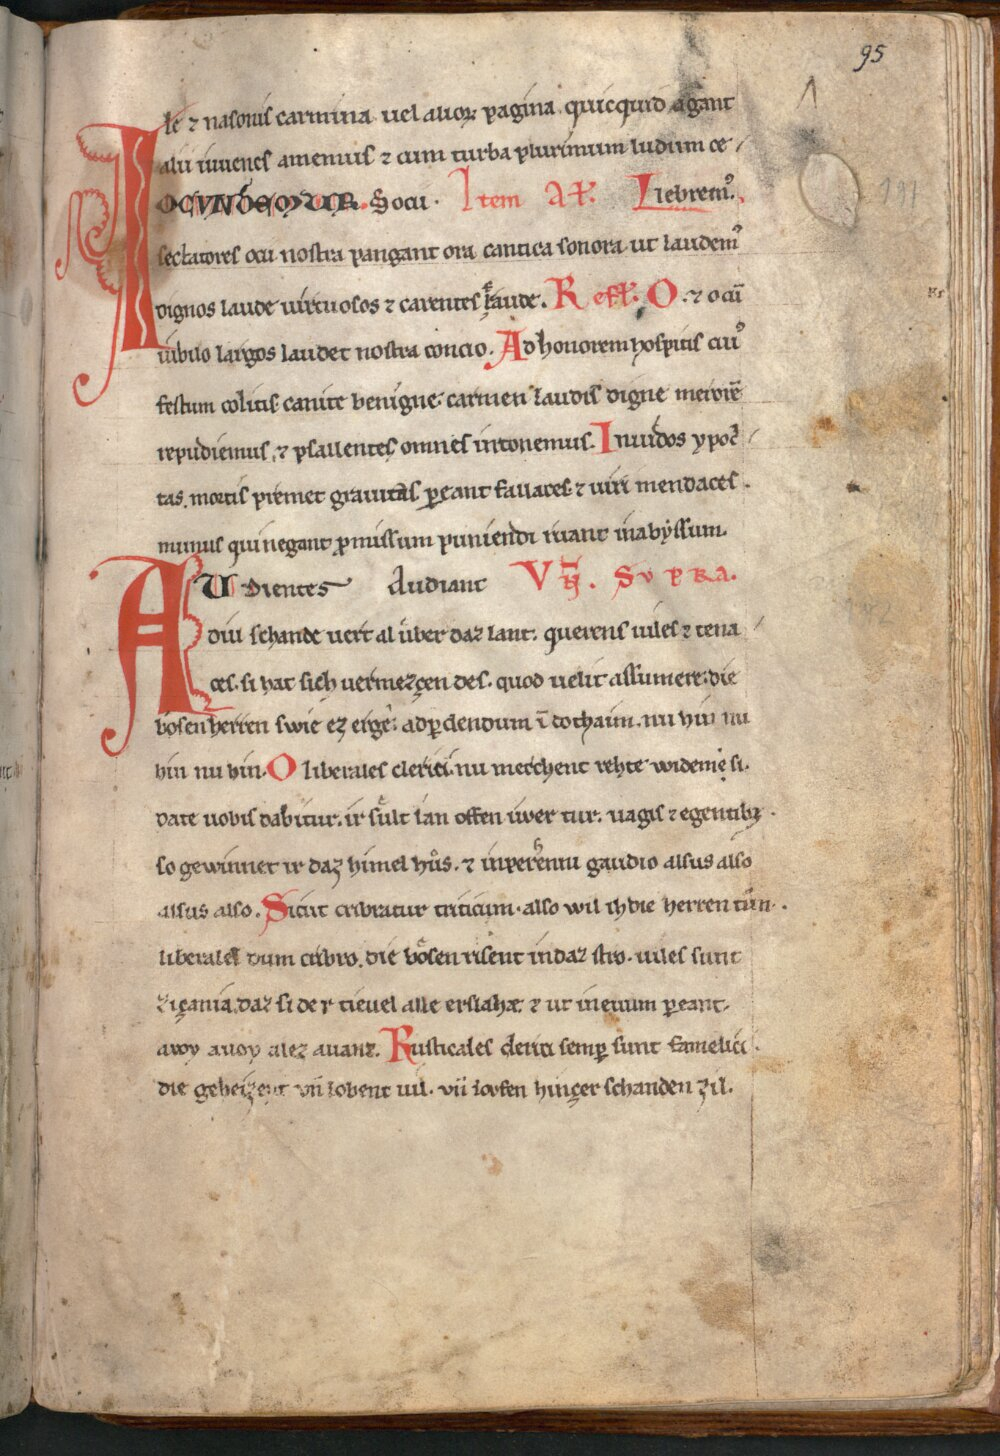 95
le ⁊ nasonis carmina. uel alioꝝ pagina. quicquid agant
alii iuuenes amemus ⁊ cum turba plurimum ludim ce
Socii. Item Al. Liebremꝰ.
sectatores ocii nostra pangant ora. cantica sonora. ut laudemꝰ
dignos laude uirtuosos ⁊ carentes fraude. Refl. O. ⁊ o cū
iubilo largos laudet nostra concio. Ad honorem hospitis cuiꝰ
festum colitis canite benigne. carmen laudis digne
repudiemus, ⁊ psallentes omnes intonemus. Inuidos ypoc
tas. mortis premet grauitas pereant fallaces ⁊ uiri mendaces.
munus qui negant ꝓmissum puniendi ruant in abyssum.
Audientes Audiant Vn. Supra.
diu schande uert al uͤber daz lant. querens uiles ⁊ tena
ces. si hat sich uermezçen des. quod uelit assumere. die
bosen herren swie ez erge: ad ꝑdendum ī tochaim. nu hin nu
hin nu hin. O liberales clerici. nu merchent rehte wi deme si.
date uobis dabitur. ir sult lan offen iwer tur. uagis ⁊ egentibꝫ.
so gewinnet ir daz himel huͦs. ⁊ in perhenni gaudio alsus also
alsus also. Sicut cribratur triticum. also wil ih die herren tuͤn.
liberales dum cribro. die boͤsen risent in daz stro. uiles sunt
ziçania. daz si der tieuel alle erslahe. ⁊ ut in euum ꝑeant.
avoy avoy alez auant. Rusticales clerici semꝑ sunt famelici.
die geheizent vñ lobent uil. vñ lovfen hinçer schanden zil.